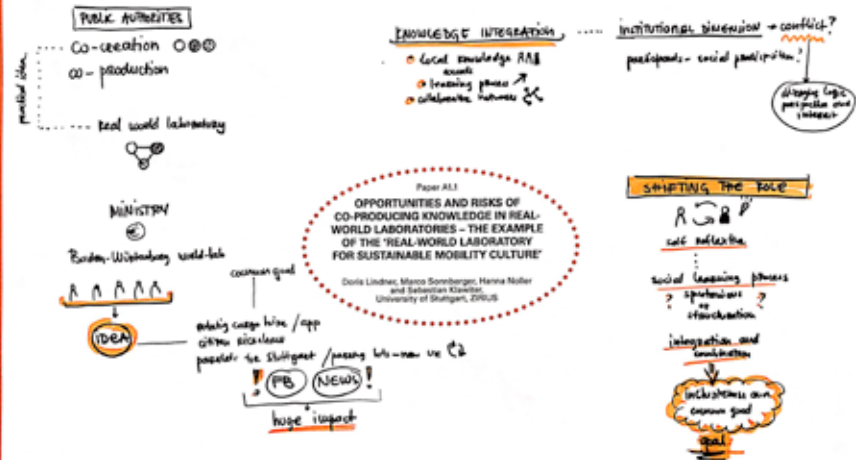 PUBLIC AUTHORITIES
co-creation
co-production
practical idea
Real world laboratory
MINISTRY
Baden-Württemberg world-lab
IDEA
common goal
cargo bike / app
citizen
Stuttgart /
! FB NEWS !
huge impact
KNOWLEDGE INTEGRATION
local knowledge
learning process
collaborative networks
INSTITUTIONAL DIMENSION → conflict?
participants - social participation!
logic
perspective and
interest
Paper A1.1
OPPORTUNITIES AND RISKS OF
CO-PRODUCING KNOWLEDGE IN REAL-
WORLD LABORATORIES – THE EXAMPLE
OF THE 'REAL-WORLD LABORATORY
FOR SUSTAINABLE MOBILITY CULTURE'
Doris Lindner, Marco Sonnberger, Hanna Noller
and Sebastian Klawiter,
University of Stuttgart, ZIRIUS
SHIFTING THE ROLE
self reflective
social learning process
? ?
integration and
common good
goal